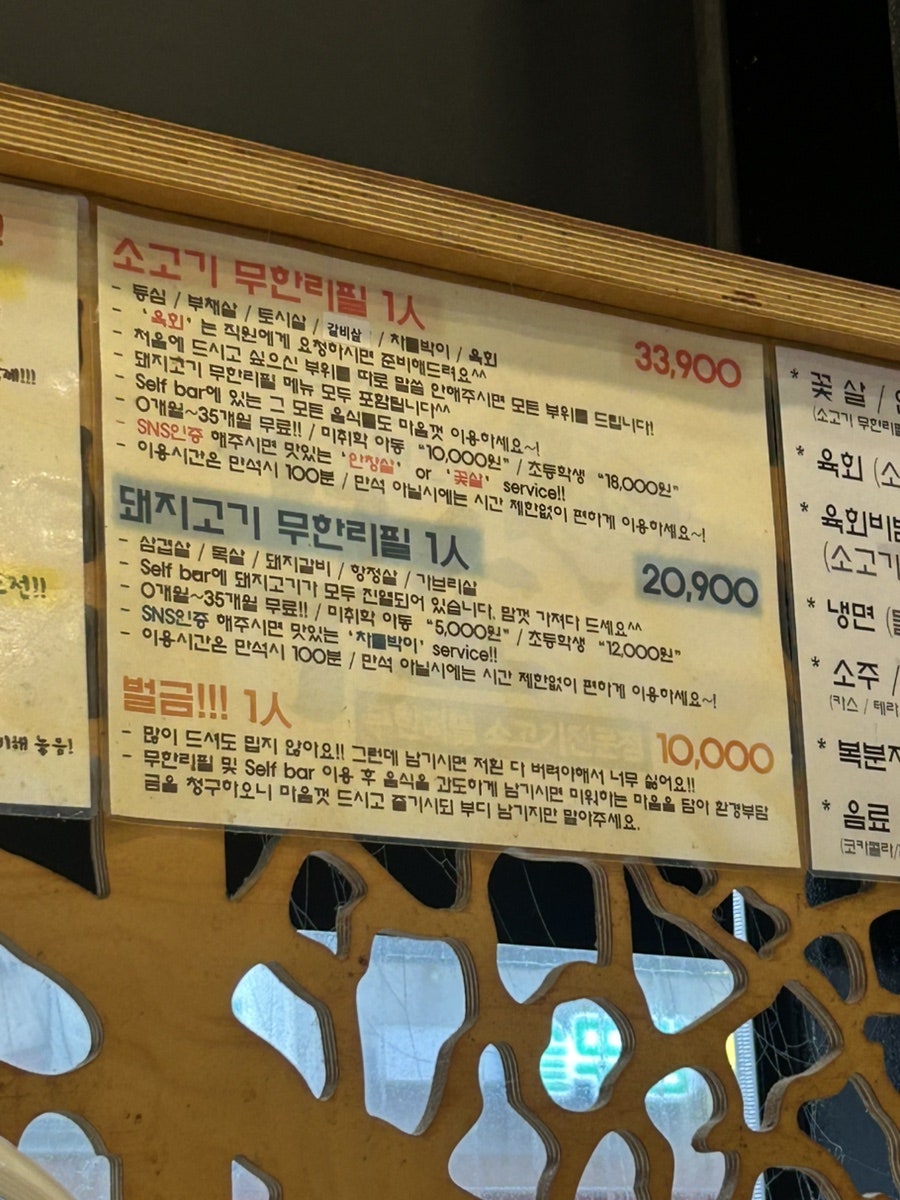 소고기 무한리필 1人
33,900
- 등심 / 부채살 / 토시살 / 갈비살 / 차돌박이 / 육회
- '육회' 는 직원에게 요청하시면 준비해드려요^^
- 처음에 드시고 싶으신 부위를 따로 말씀 안해주시면 모든 부위를 드립니다!
- 돼지고기 무한리필 메뉴 모두 포함됩니다^^
- Self bar에 있는 그 모든 음식들도 마음껏 이용하세요~!
- 0개월~35개월 무료!! / 미취학 아동 "10,000원" / 초등학생 "18,000원"
- SNS인증 해주시면 맛있는 '안창살' or '꽃살' service!!
- 이용시간은 만석시 100분 / 만석 아닐시에는 시간 제한없이 편하게 이용하세요~!
돼지고기 무한리필 1人
20,900
- 삼겹살 / 목살 / 돼지갈비 / 항정살 / 가브리살
- Self bar에 돼지고기가 모두 진열되어 있습니다. 맘껏 가져다 드세요^^
- 0개월~35개월 무료!! / 미취학 아동 "5,000원" / 초등학생 "12,000원"
- SNS인증 해주시면 맛있는 '차돌박이' service!!
- 이용시간은 만석시 100분 / 만석 아닐시에는 시간 제한없이 편하게 이용하세요~!
벌금!!! 1人
10,000
- 많이 드셔도 밉지 않아요!! 그런데 남기시면 저흰 다 버려야해서 너무 싫어요!!
- 무한리필 및 Self bar 이용 후 음식을 과도하게 남기시면 미워하는 마음을 담아 환경부담
금을 청구하오니 마음껏 드시고 즐기시되 부디 남기지만 말아주세요.
* 꽃 살 /
(소고기 무한리필
* 육회 (소
* 육회비빔
(소고기
* 냉면
* 소주 /
(카스 / 테라
* 복분자
* 음료
(코카콜라/
놓음!